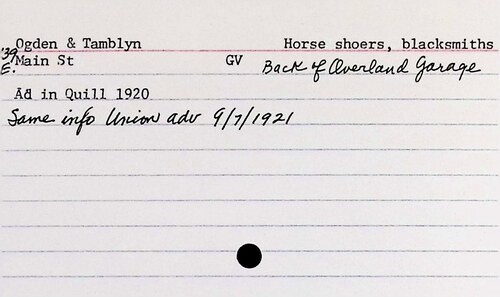 Ogden & Tamblyn Horse shoers, blacksmiths
'39 E. Main St GV Back of Overland Garage
Ad in Quill 1920
Same info Union adv 9/7/1921